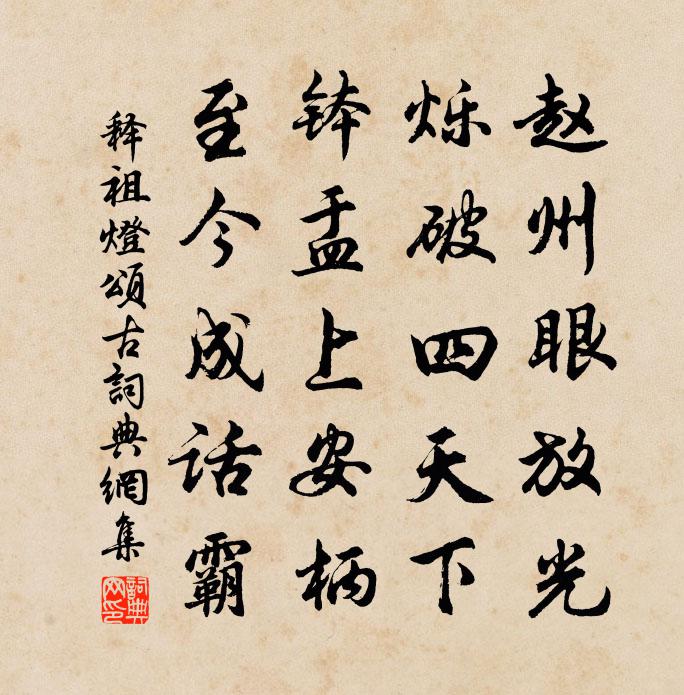 赵州眼放光
烁破四天下
钵盂上安柄
至今成话霸
释祖燈頌古詞典網集
詞典網印